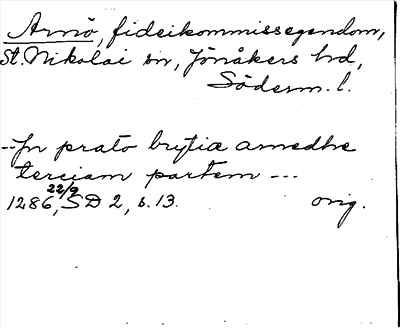 Arnö, fideikommissegendom,
St. Nikolai sn, Jönåkers hd,
Söderm. l.
--Jn prato brytiæ amedhe
terciam partem ---
1286 22/9, SD 2, s. 13. orig.